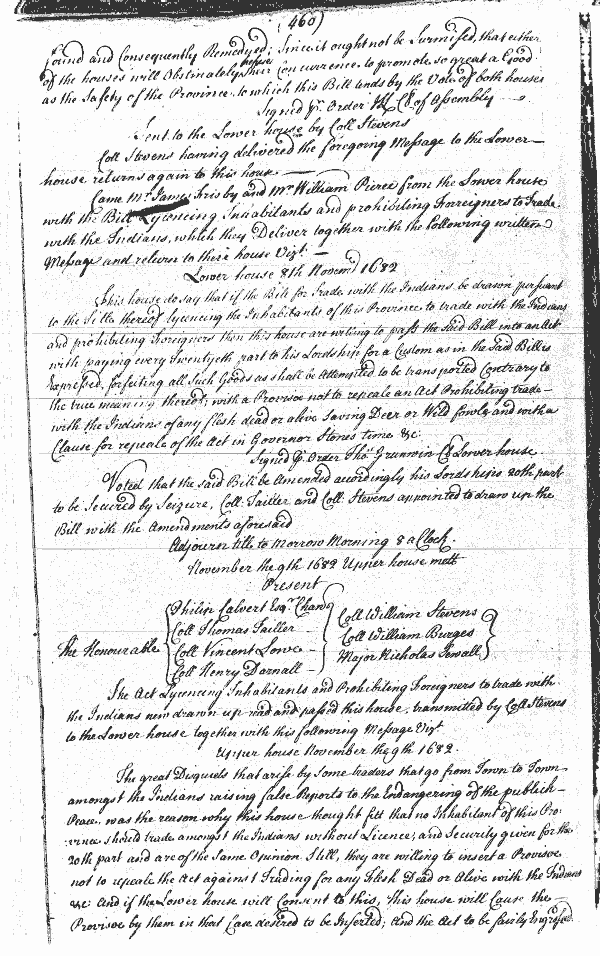 (460)
found and Consequently Remedyed; Since it ought not be Surmised, that either
of the houses will Obstinately refuse their Concurrence to promote so great a Good
as the Safety of the Province, to which this Bill tends by the Vote of both houses
Signed p. Order Cl of Assembly
Sent to the Lower house by Coll Stevens
Coll Stevens having delivered the foregoing Message to the Lower
house returns again to this house
Came Mr James Frisby and Mr William Pierce from the Lower house
with the Bill Lycencing Inhabitants and prohibiting Foreigners to Trade
with the Indians, which they Deliver together with the following written
Message and return to their house Vizt.
Lower house 8th Novem 1682
This house do say that if the Bill for Trade with the Indians be drawn pursuant
to the Title thereof Lycencing the Inhabitants of this Province to trade with the Indians
and prohibiting Foreigners then this house are willing to pass the Said Bill into an Act
with paying every Twentyeth part to his Lordship for a Custom as in the Said Bill is
Expressed, forfeiting all Such Goods as shall be Attempted to be transported Contrary to
the true meaning thereof; with a Provisoe not to repeale an Act Prohibiting trade
with the Indians of any flesh dead or alive Saving Deer or Wild fowle, and with a
Clause for repeale of the Act in Governor Stones time &c
Signed p. Order Thos. Grunwin Cl Lower house
Voted that the said Bill be Amended accordingly his Lordships 20th part
to be Secured by Seizure, Coll. Tailler and Coll. Stevens appointed to draw up the
Bill with the Amendments aforesaid
Adjourn till to Morrow Morning 8 a Clock.
November the 9th 1682 Upper house mett
Present
The Honourable
Philip Calvert Esqr. Chanc
Coll Thomas Tailler
Coll Vincent Lowe
Coll Henry Darnall
Coll William Stevens
Coll William Burges
Major Nicholas Sewall
The Act Lycencing Inhabitants and Prohibiting Foreigners to trade with
the Indians new drawn up read and passed this house, transmitted by Coll Stevens
to the Lower house together with this following Message Vizt.
Upper house November the 9th 1682.
The great Disquiets that arise by Some traders that go from Town to Town
amongst the Indians raising false Reports to the Endangering of the publick
Peace, was the reason why this house thought fitt that no Inhabitant of this Pro-
vince should trade amongst the Indians without Licence; and Security given for the
20th part and are of the Same Opinion Still, they are willing to insert a Provisoe
not to repeale the Act against Trading for any Flesh Dead or Alive with the Indians
&c And if the Lower house will Consent to this, This house will Cause the
Provisoe by them in that Case desired to be Inserted; And the Act to be fairly Engrossed